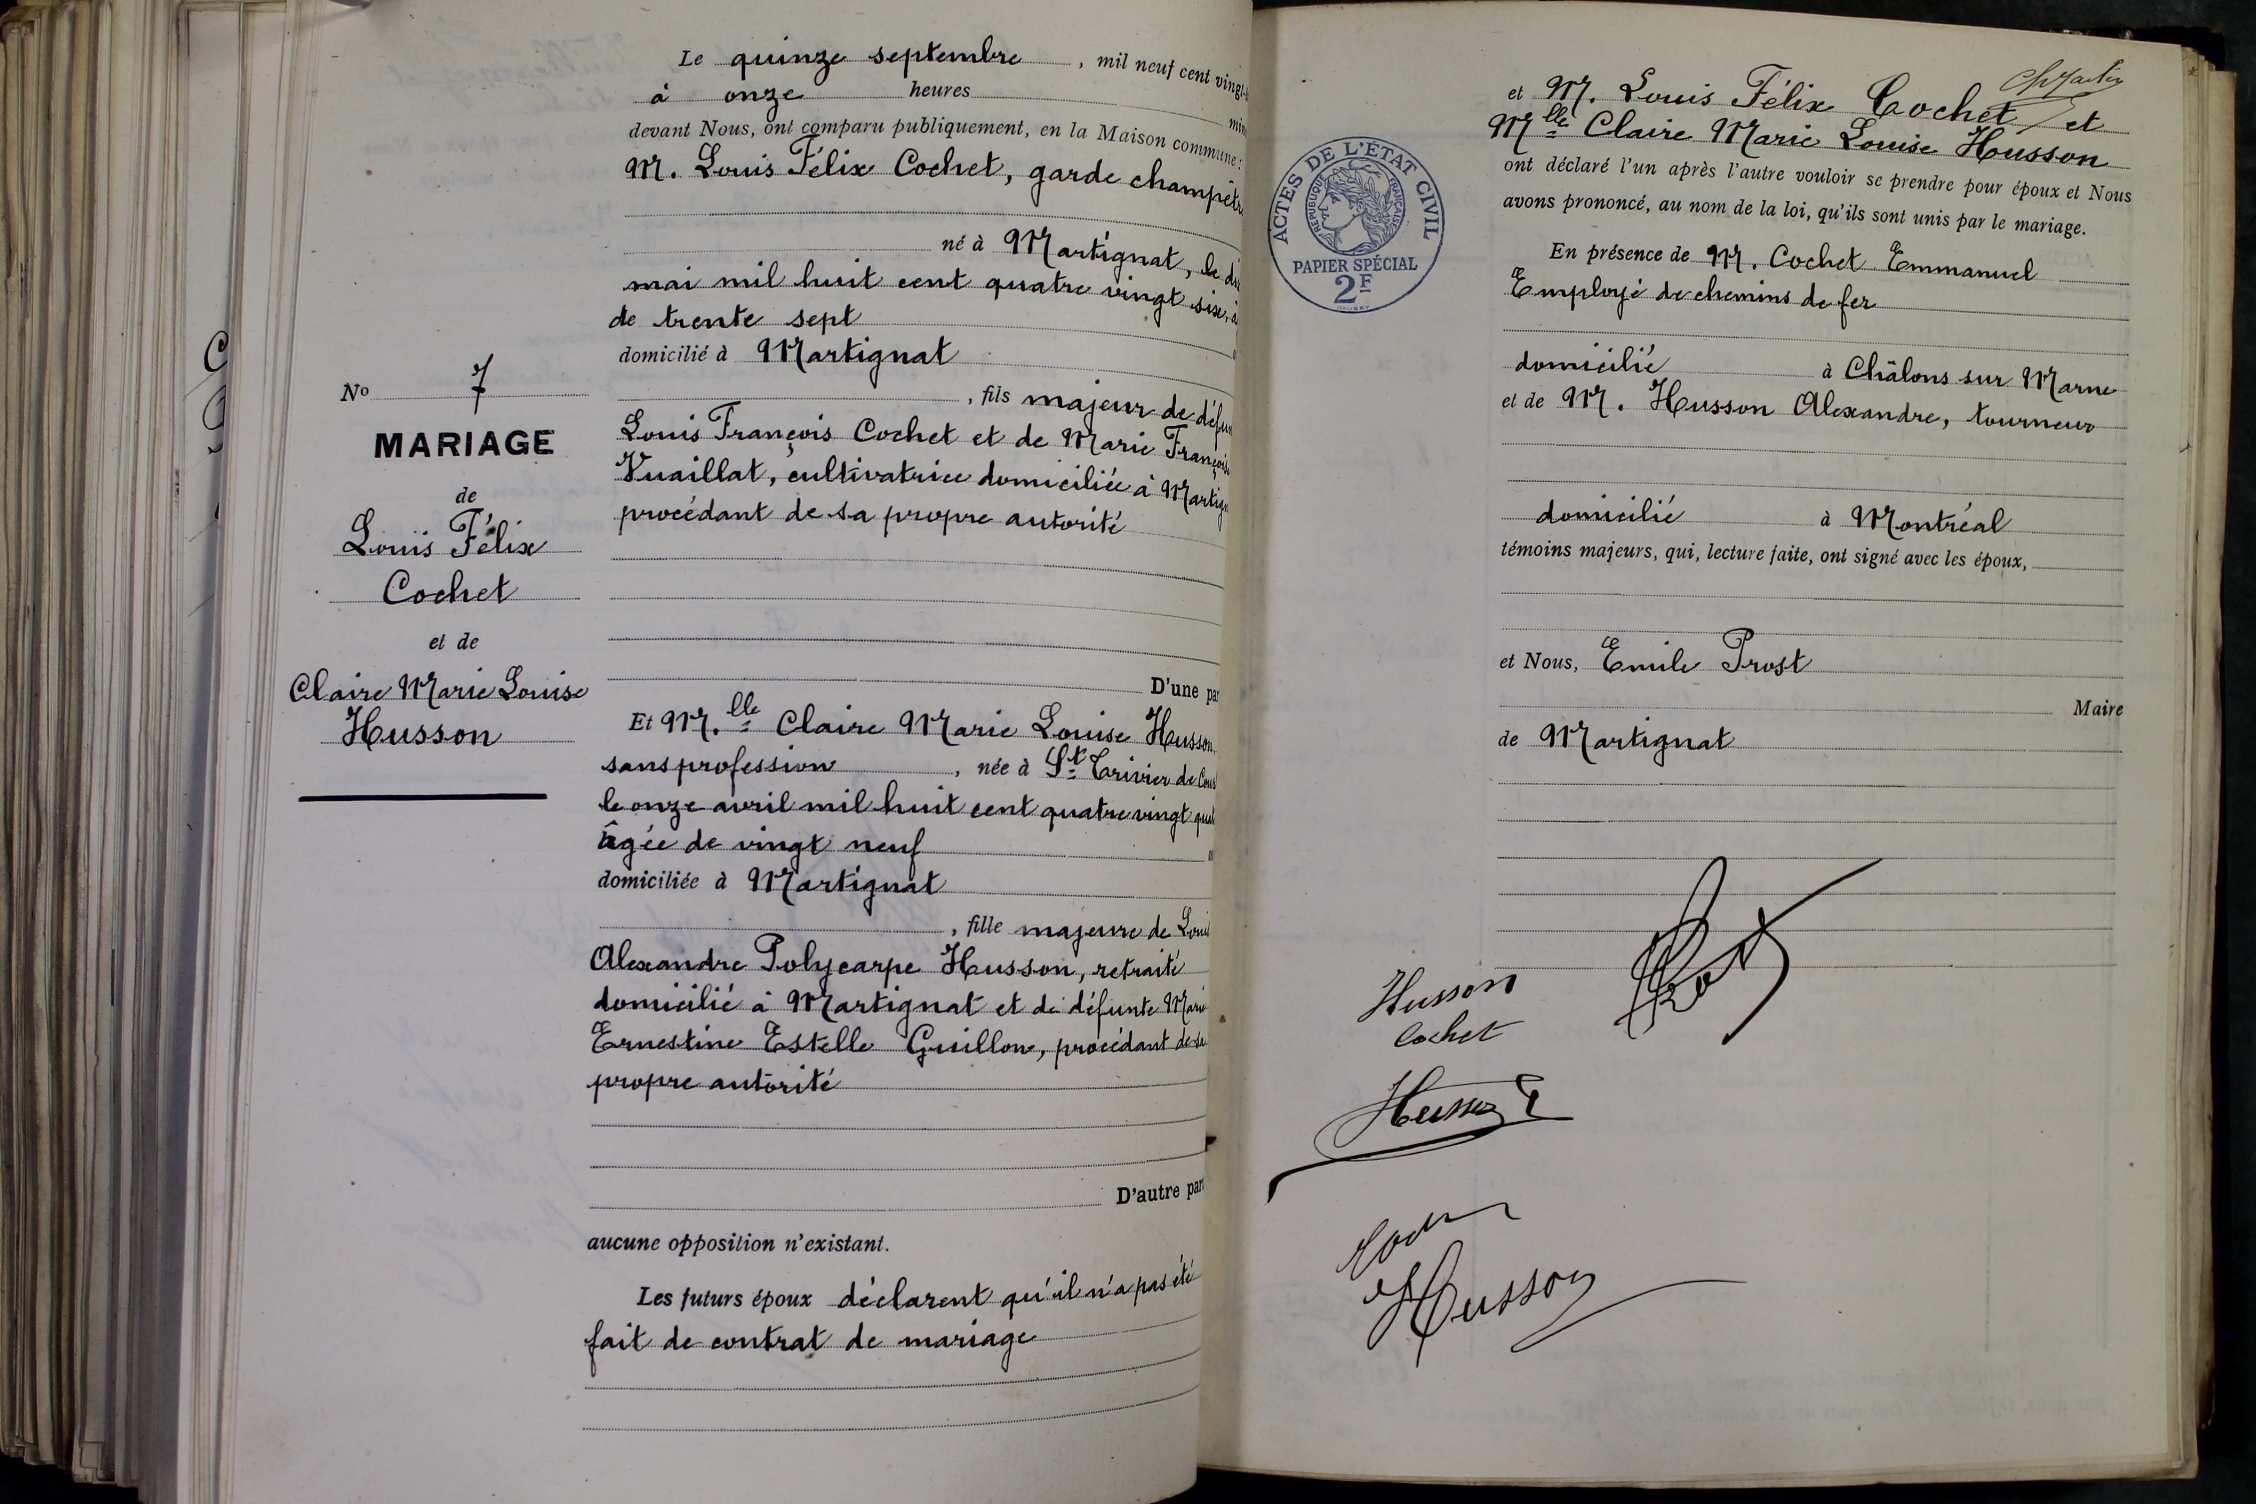 Le quinze septembre, mil neuf cent
à onze heures
devant Nous, ont comparu publiquement, en la Maison commune :
M. Louis Félix Cochet, garde champêtre
né à Martignat, le
mai mil huit cent quatre vingt six,
de trente sept
domicilié à Martignat
, fils majeur de
Louis François Cochet et de Marie
Vuaillat, cultivatrice domiciliée à
procédant de sa propre autorité
D'une
Et M.lle Claire Marie Louise Husson,
sans profession, née à St Trivier de
le onze avril mil huit cent quatre vingt
âgée de vingt neuf
domiciliée à Martignat
, fille majeure de Louis
Alexandre Polycarpe Husson, retraité
domicilié à Martignat et de défunte Marie
Ernestine Estelle Guillon, procédant de sa
propre autorité
D'autre
aucune opposition n'existant.
Les futurs époux déclarent qu'il n'a pas été
fait de contrat de mariage
No 7
MARIAGE
de
Louis Félix
Cochet
et de
Claire Marie Louise
Husson
et M. Louis Félix Cochet et
Mlle Claire Marie Louise Husson
ont déclaré l'un après l'autre vouloir se prendre pour époux et Nous
avons prononcé, au nom de la loi, qu'ils sont unis par le mariage.
En présence de M. Cochet Emmanuel
Employé de chemins de fer
domicilié à Châlons sur Marne
et de M. Husson Alexandre, tourneur
domicilié à Montréal
témoins majeurs, qui, lecture faite, ont signé avec les époux,
et Nous, Emile Prost
Maire
de Martignat
ACTES DE L'ÉTAT CIVIL
RÉPUBLIQUE FRANÇAISE
PAPIER SPÉCIAL
2F
Husson
Cochet
Husson
Husson